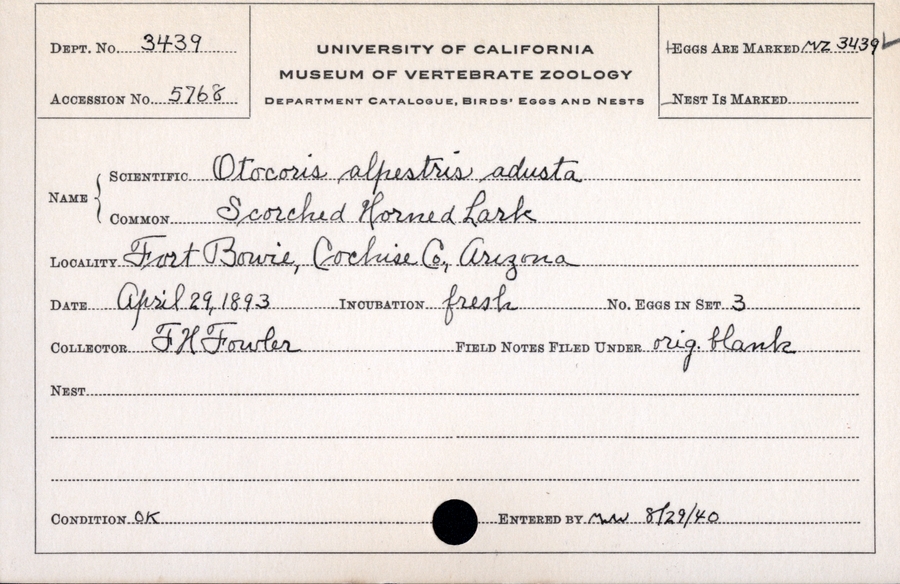 Dept. No. 3439
University of California
Museum of Vertebrate Zoology
Department Catalogue, Birds' Eggs and Nests
Eggs Are Marked MZ 3439
Accession No. 5768
Nest Is Marked
Name
Scientific Otocoris alpestris adusta
Common Scorched Horned Lark
Locality Fort Bowie, Cochise Co., Arizona
Date April 29, 1893 Incubation fresh No. Eggs in Set 3
Collector F H Fowler Field Notes Filed Under orig. blank
Nest
Condition OK Entered by 8/29/40